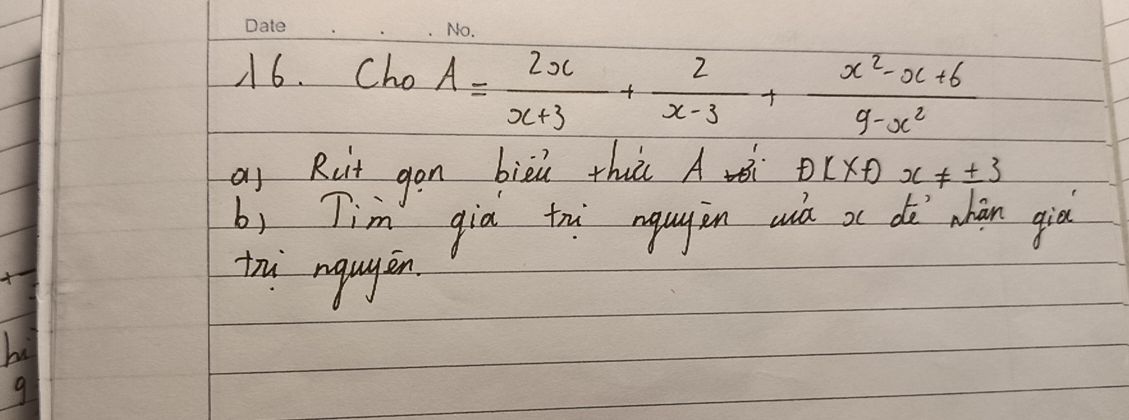 Date . . . No.
16. Cho A = \frac{2x}{x+3} + \frac{2}{x-3} + \frac{x^2-x+6}{9-x^2}
a) Rút gọn biểu thức A với ĐKXĐ x ≠ ±3
b) Tìm giá trị nguyên của x để nhận giá
trị nguyên.